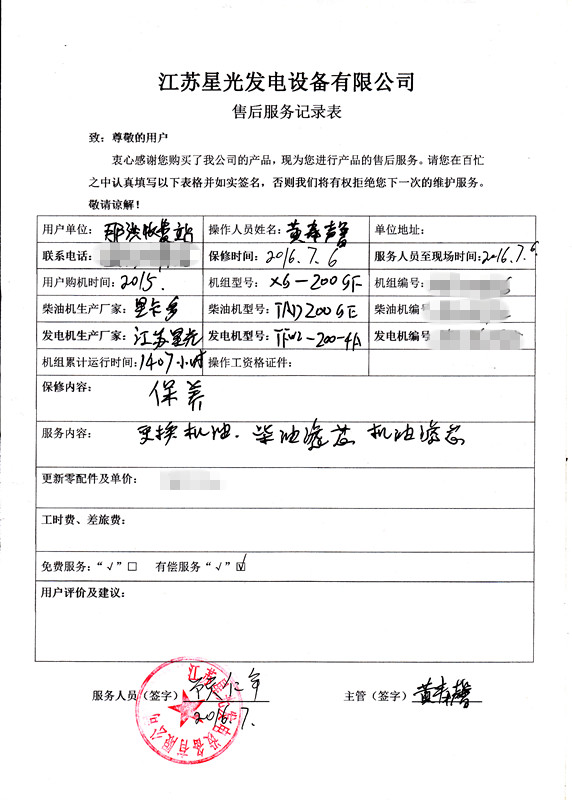 江苏星光发电设备有限公司
售后服务记录表
致：尊敬的用户
衷心感谢您购买了我公司的产品，现为您进行产品的售后服务。请您在百忙
之中认真填写以下表格并如实签名，否则我们将有权拒绝您下一次的维护服务。
敬请谅解！
用户单位： 操作人员姓名： 单位地址：
联系电话： 保修时间：2016.7.6 服务人员至现场时间：2016.7.6
用户购机时间：2015. 机组型号：XG-200GF 机组编号：
柴油机生产厂家： 柴油机型号：TAD200GE 柴油机编号
发电机生产厂家：江苏星光 发电机型号：TFW2-200-4A 发电机编号
机组累计运行时间：1407小时 操作工资格证件：
保修内容： 保养
服务内容： 更换机油、柴油滤芯 机油滤芯
更新零配件及单价：
工时费、差旅费：
免费服务：“√”□ 有偿服务“√”☑
用户评价及建议：
服务人员（签字） 主管（签字）
2016.7.